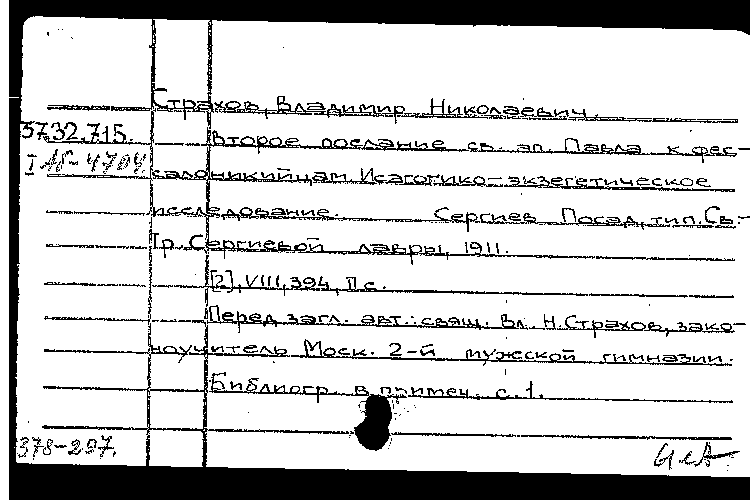 Страхов, Владимир Николаевич.
5732.715. Второе послание св. ап. Павла к фес-
I АБ-4704 салоникийцам. Исагогико-экзегетическое
исследование. Сергиев Посад, тип. Св.-
Тр. Сергиевой лавры, 1911.
[2], VIII, 394, II с.
Перед загл. авт.: свящ. Вл. Н. Страхов, зако-
ноучитель Моск. 2-й мужской гимназии.
Библиогр. в примеч. с. 1.
378-297.